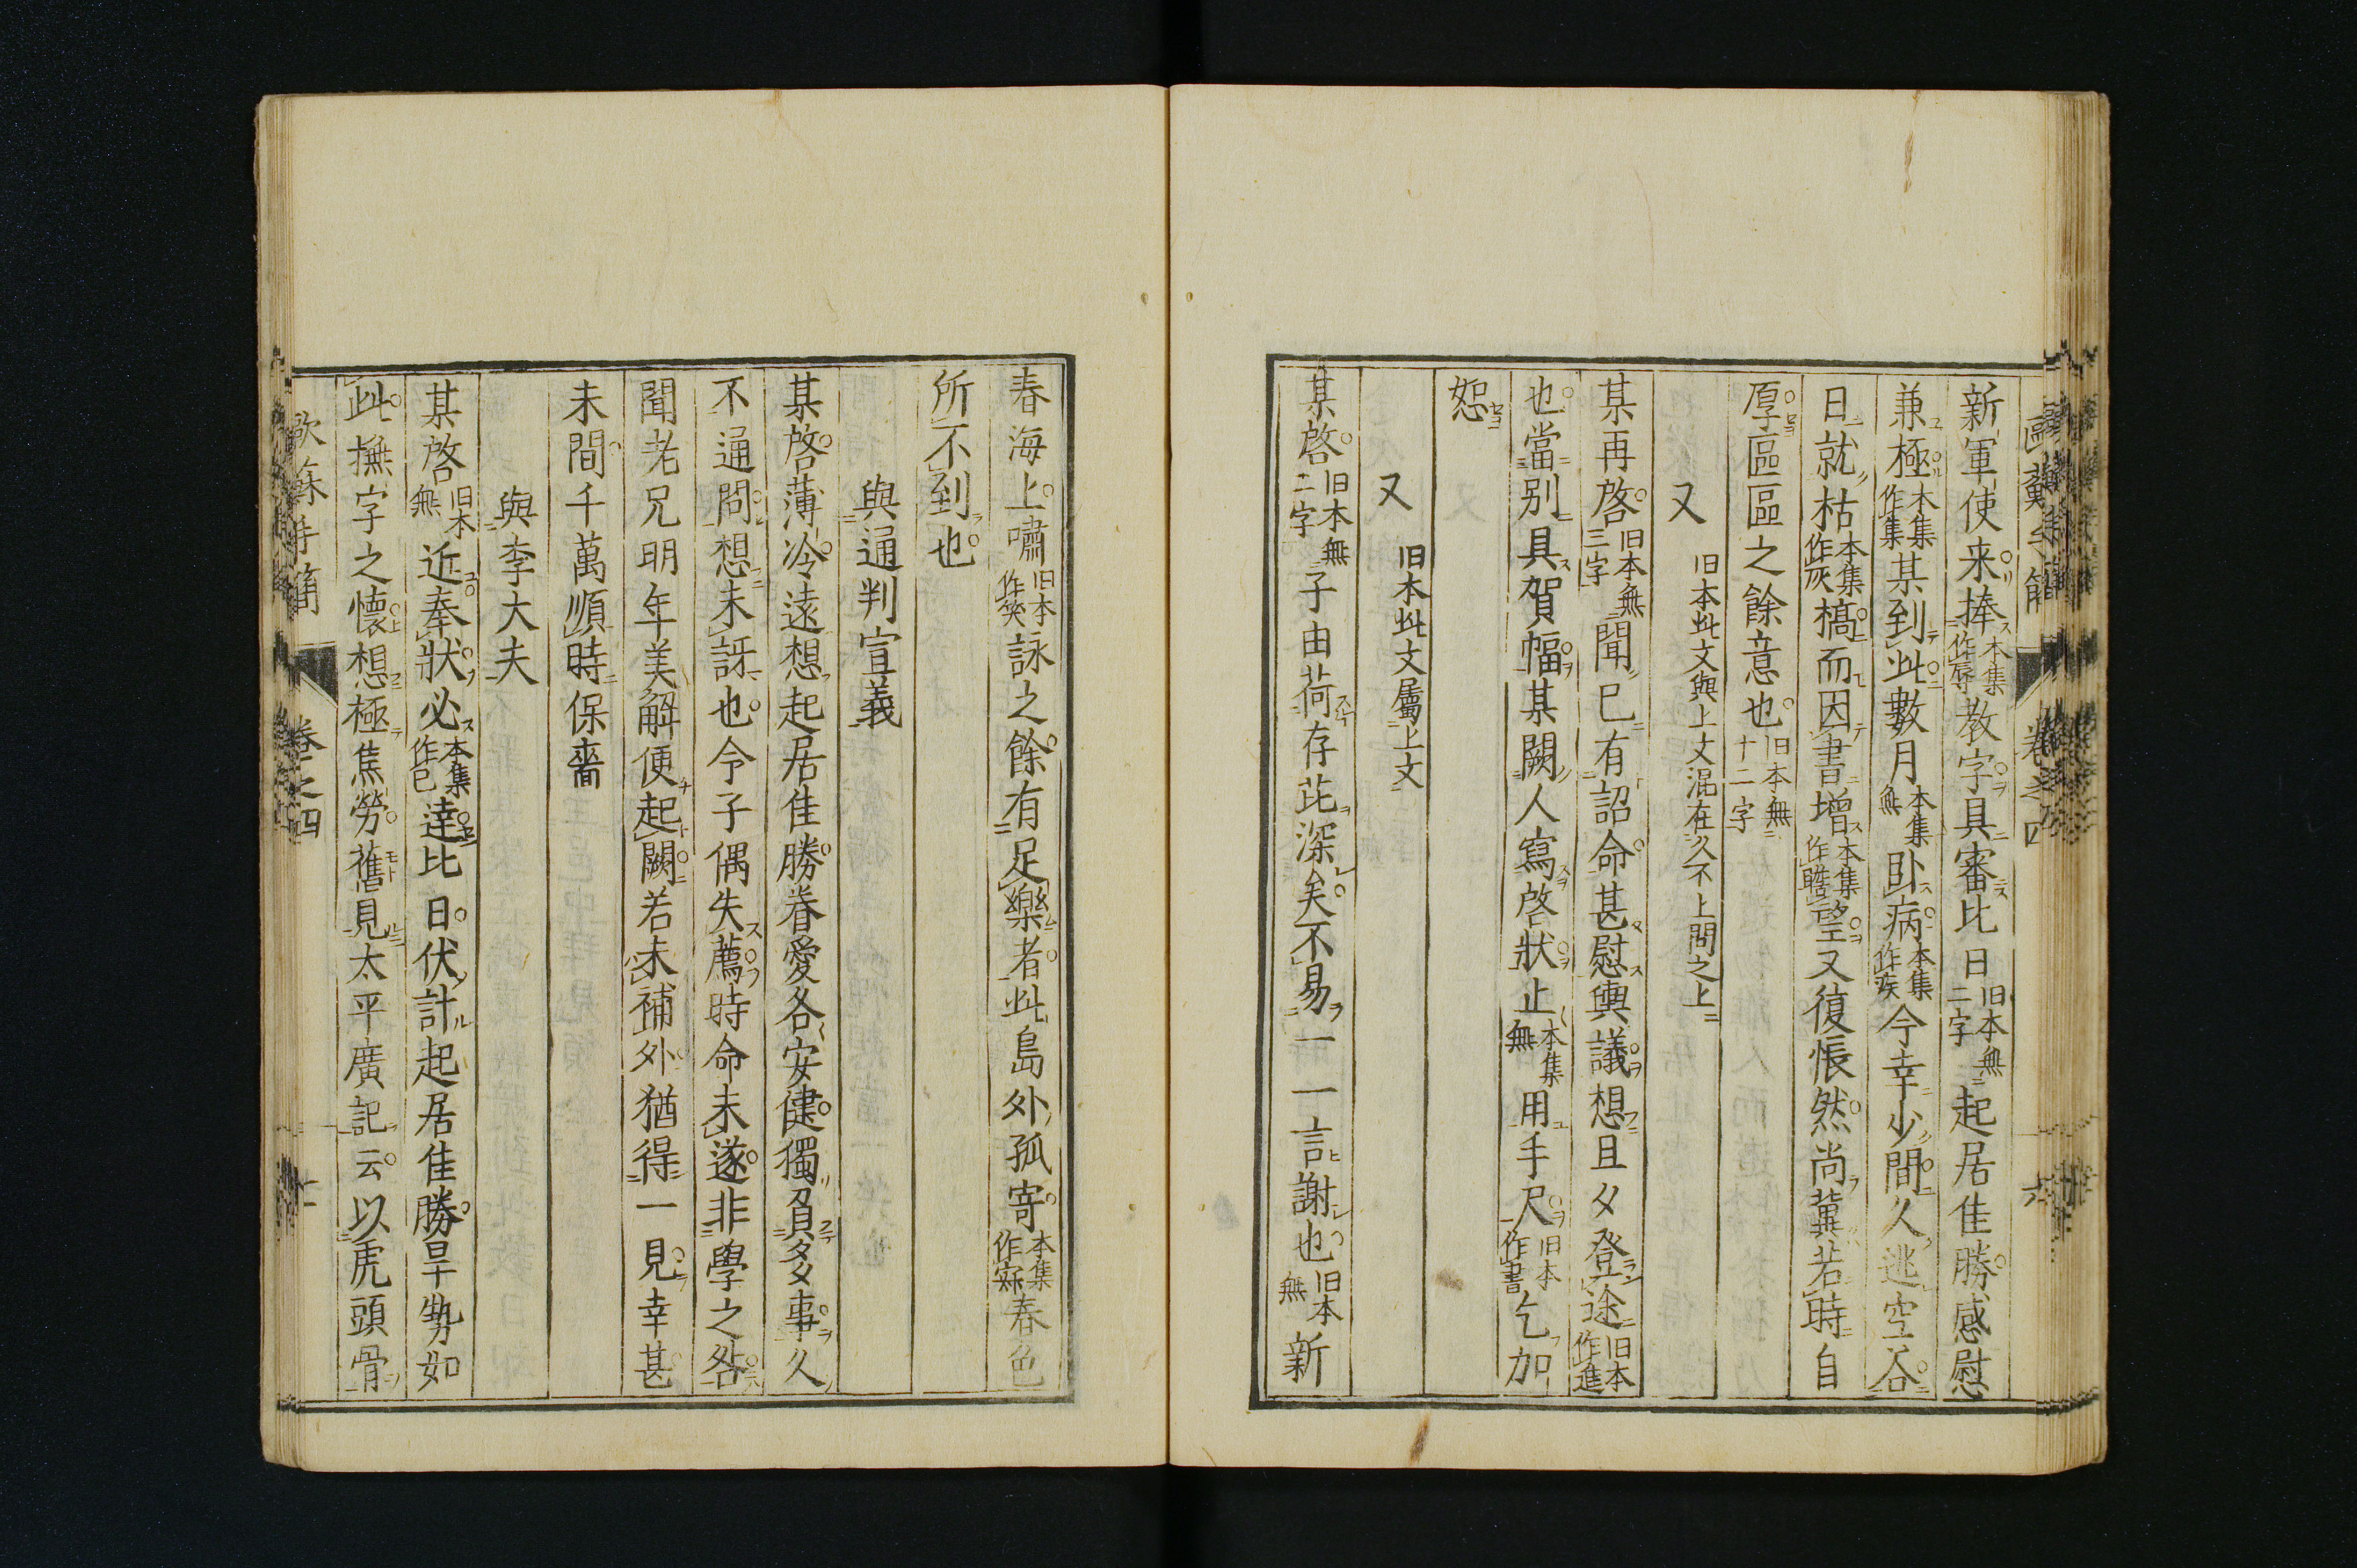 新軍使来捧本集作辱教字具審比日旧本無二字起居佳勝感慰
兼極本集作集某到此數月本集無卧病本集作疾今幸少間久逃空谷
日就枯本集作灰槁而因書增本集作瞻望又復悵然尚冀若時自
厚區區之餘意也旧本無十二字
又 旧本此文與上文混在久不上問之上
某再啓旧本無三字聞已有詔命甚慰輿議想且夕登途旧本作進
也當別具賀幅某闕人寫啓狀止本集無用手尺旧本作書乞加
恕
又 旧本此文屬上文
某啓旧本無二字子由荷存茈深矣不易一一言謝也旧本無新
春海上嘯旧本作笑詠之餘有足樂者此島外孤寄本集作寂春色
所不到也
與通判宣義
某啓薄冷遠想起居佳勝眷愛各安健獨負多事久
不通問想未訝也令子偶失薦時命未遂非學之咎
聞老兄明年美解便起闕若未補外猶得一見幸甚
未間千萬順時保嗇
與李大夫
某啓旧本無近奉狀必本集作已達比日伏計起居佳勝旱勢如
此撫字之懷想極焦勞舊見太平廣記云以虎頭骨
歐蘇手簡 卷之四